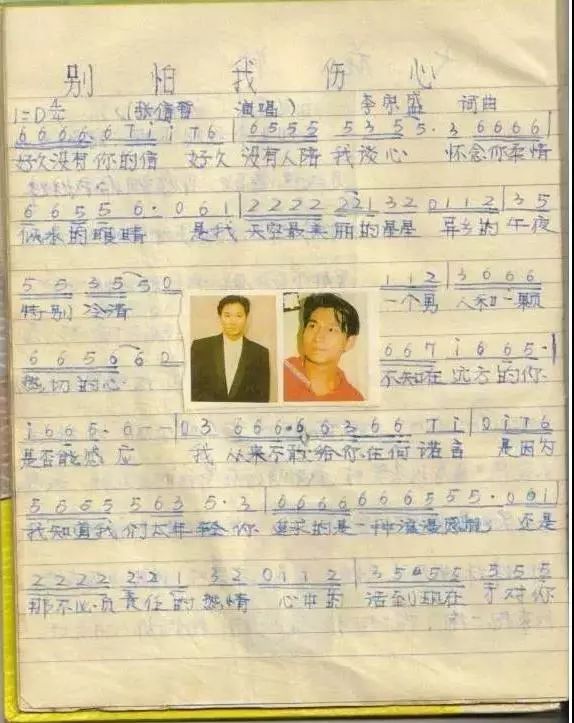 别怕我伤心
1=D 4/4 (张信哲 演唱) 李宗盛 词曲
6 6 6 6· 6 7 1 1 7 6 | 6 5 5 5 5 3 5 5 · 3 6 6 6 6 |
好久没有你的信 好久没有人陪我谈心 怀念你柔情
6 6 5 5 6 · 0 6 1 | 2 2 2 2 2 2 1 3 2 0 1 1 2 | 3 5
似水的眼睛 是我天空最美丽的星星 异乡的午夜
5 5 3 5 5 0 1 1 2 | 3 6 6 6
特别冷清 一个男人和一颗
6 6 5 6 6 0 6 6 7 1 6 6 5 · |
热切的心 不知在远方的你
1 6 6 5 · 6 - - | 0 3 6 6 6 · 6 6 3 6 6 7 1 | 0 1 7 6
是否能感应 我从来不敢给你任何诺言 是因为
5 6 5 5 5 6 3 5 · 3 | 6 6 6 6 6 6 6 5 5 5 · 0 6 1 |
我知道我们太年轻你 追求的是一种浪漫感觉 还是
2 2 2 2 2 · 2 1 3 2 0 1 1 2 | 3 5 5 5 5 5 5
那不必负责任的热情 心中的 话到现在 才对你